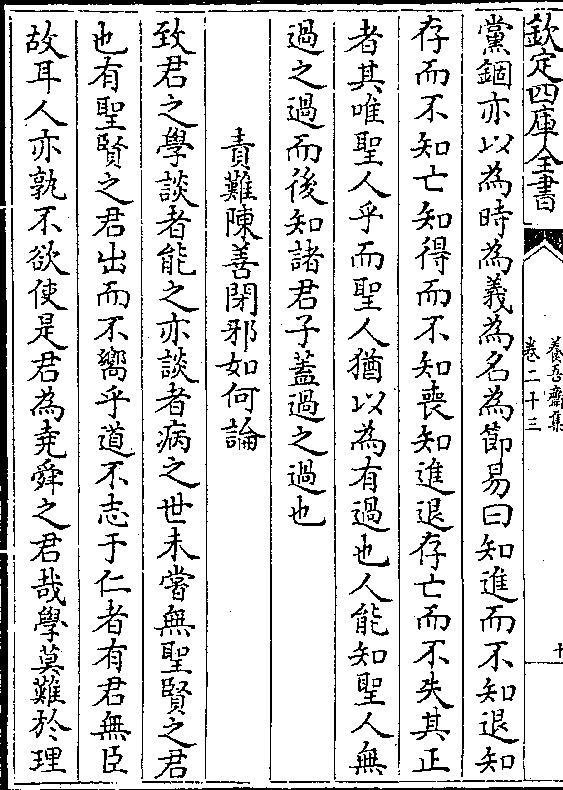 欽定四庫全書
養吾齋集
卷二十三
十
黨錮亦以為時為義為名為節易曰知進而不知退知
存而不知亡知得而不知喪知進退存亡而不失其正
者其唯聖人乎而聖人猶以為有過也人能知聖人無
過之過而後知諸君子蓋過之過也
責難陳善閉邪如何論
致君之學談者能之亦談者病之世未嘗無聖賢之君
也有聖賢之君出而不嚮乎道不志于仁者有君無臣
故耳人亦孰不欲使是君為堯舜之君哉學莫難於理